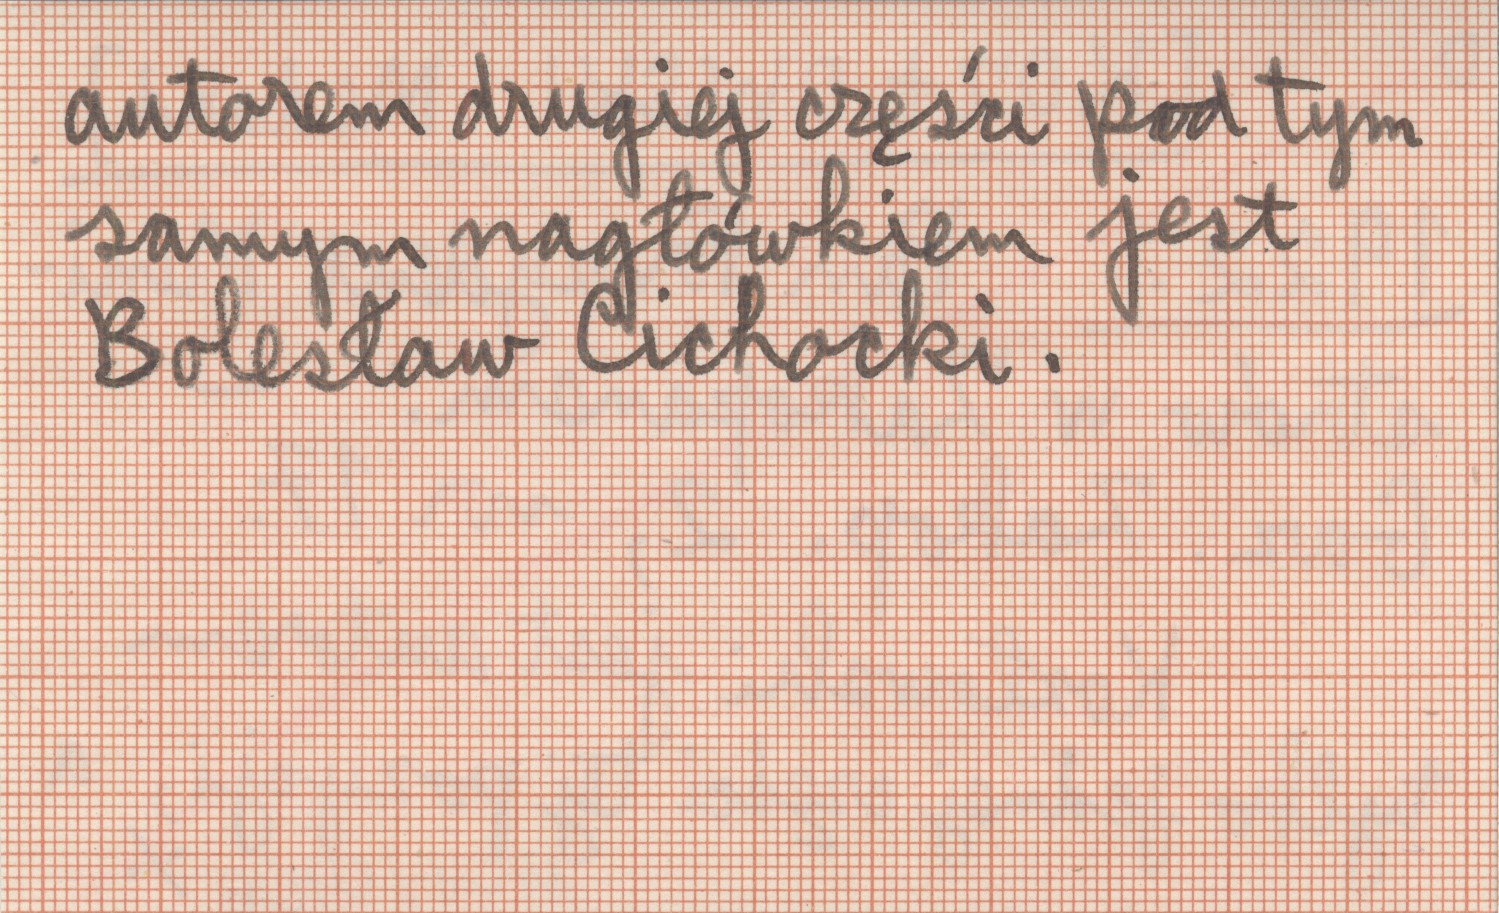 autorem drugiej części pod tym
samym nagłówkiem jest
Bolesław Cichocki.